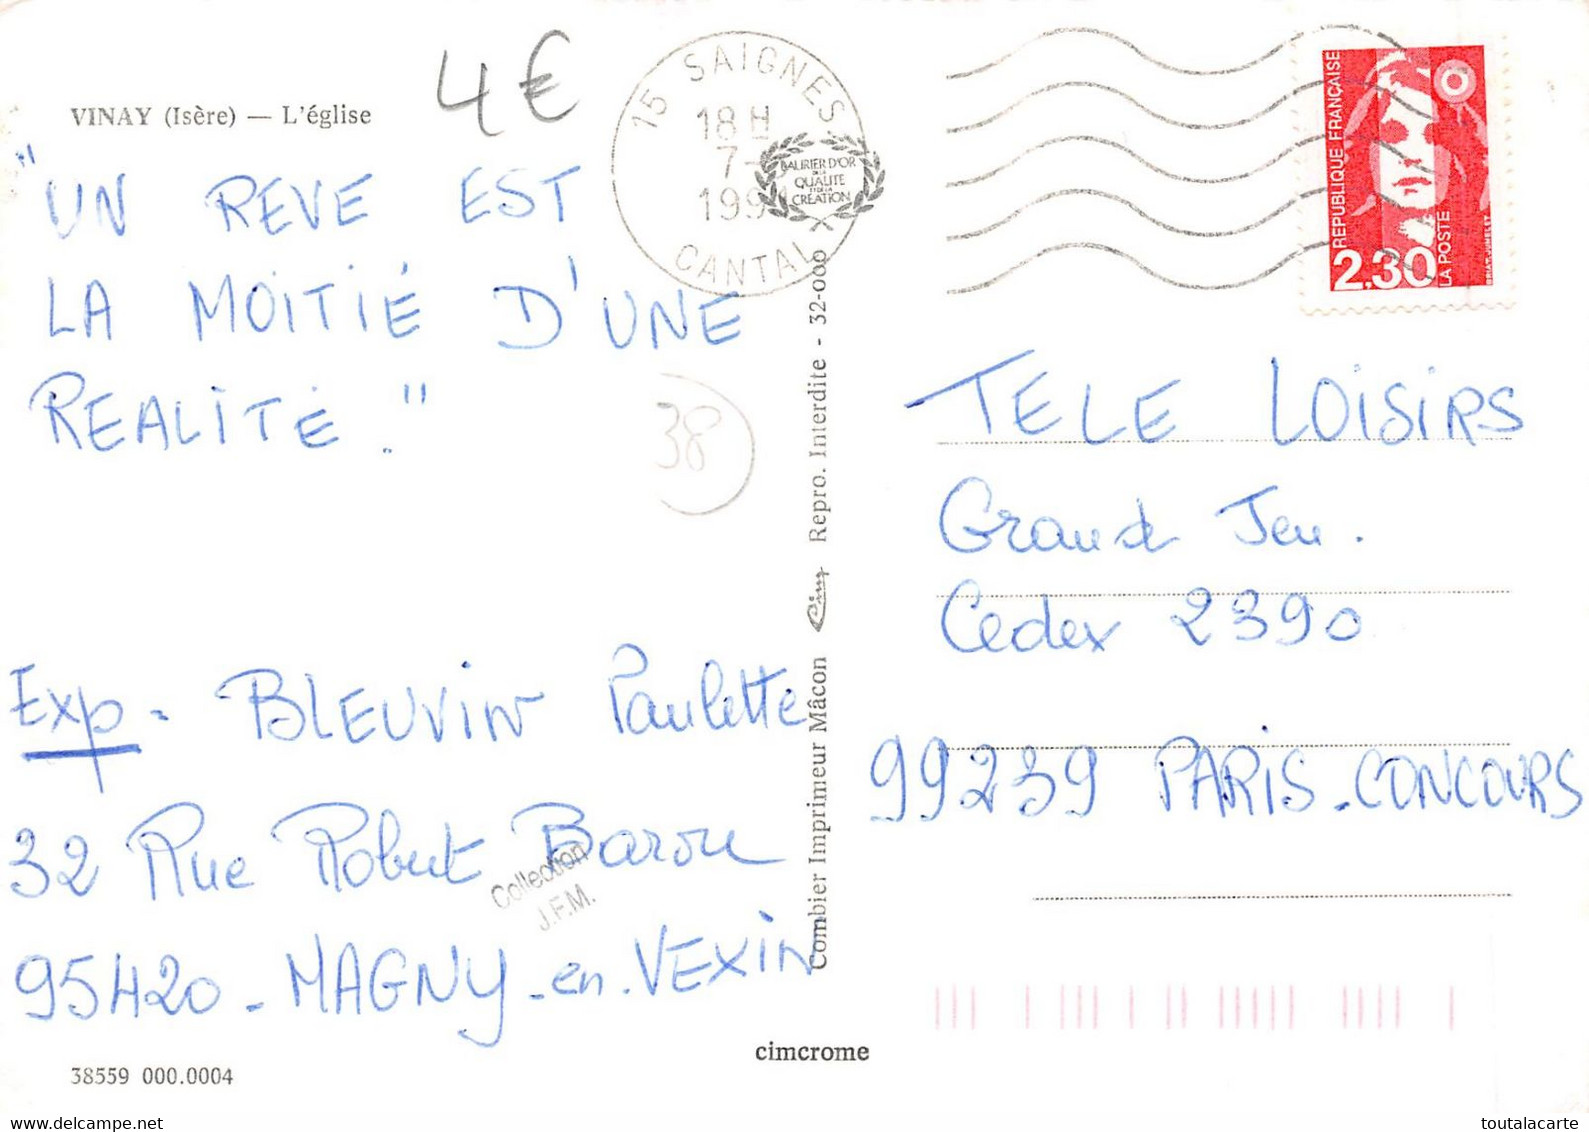 VINAY (Isère) — L'église
4€
"UN REVE EST
LA MOITIÉ D'UNE
REALITÉ."
38
Exp. BLEUVIN Paulette
32 Rue Robert Baron
95420 - MAGNY-en-VEXIN
Collection
J.F.M.
38559 000.0004
15 SAIGNES
18 H
7-
199
CANTAL
LAURIER D'OR
DE LA
QUALITE
ET DE LA
CREATION
Combier Imprimeur Mâcon Cim Repro. Interdite - 32-000
cimcrome
REPUBLIQUE FRANÇAISE
2,30
LA POSTE
TELE LOISIRS
Grand Jeu.
Cedex 2390
99239 PARIS-CONCOURS
delcampe.net
toutalacarte